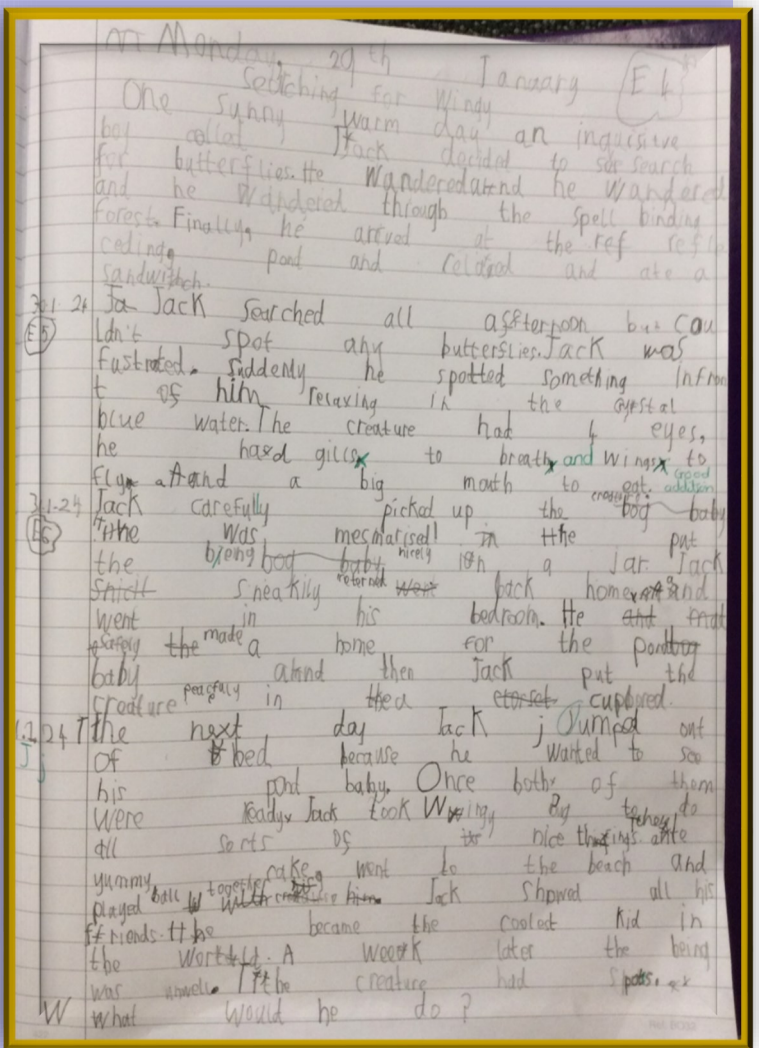 Monday 29th January E1
Searching for Wingy
One sunny warm day an inquisitive
boy collat Jack decided to search
for butterflies. He wandered and he wandered
and he wandered through the spell binding
forest. Finally, he arived at the ref refle
ceding pond and relaxed and ate a
sandwitch.
30.1.24 Ja Jack searched all afternoon but cou
E5 ldn't spot any butterflies. Jack was
fustrated. Suddenly he spotted something infron
t of him relaxing in the crystal
blue water. The creature had 4 eyes,
he had gills to breath and wings to
fly and a big mouth to eat. Good addition
31.1.24 Jack carefully picked up the bog baby creature
E6 He was mesmarised! He put
the bieng bog baby nicely in a jar. Jack
sneakily returned went back home and
went in his bedroom. He and
safely the made a home for the pond bog
baby and then Jack put the
creature peacefuly in a cupbored.
1.2.24 The next day Jack jumped out
Jj of bed because he wanted to see
his pond baby. Once both of them
were ready, Jack took Wingy to do
all sorts of nice things. they ate
yummy cake, went to the beach and
played ball together with him Jack showed all his
friends. He became the coolest kid in
the world. A week later the being
was unwell. The creature had spots.
W what would he do?